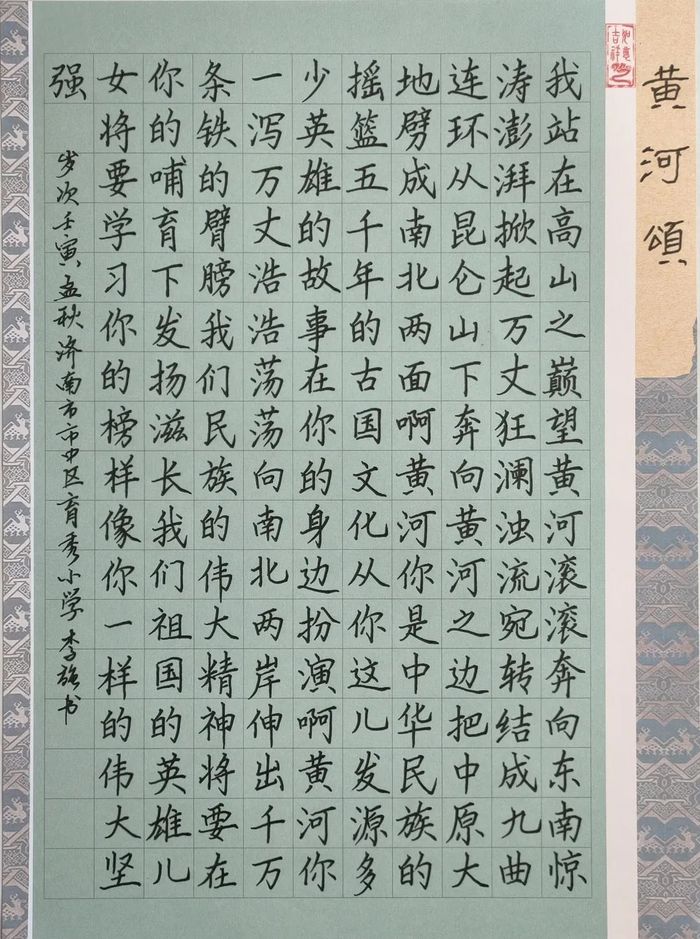 黄河頌
我站在高山之巅望黄河滚滚奔向东南惊
涛澎湃掀起万丈狂澜浊流宛转结成九曲
连环从昆仑山下奔向黄河之边把中原大
地劈成南北两面啊黄河你是中华民族的
摇篮五千年的古国文化从你这儿发源多
少英雄的故事在你的身边扮演啊黄河你
一泻万丈浩浩荡荡向南北两岸伸出千万
条铁的臂膀我们民族的伟大精神将要在
你的哺育下发扬滋长我们祖国的英雄儿
女将要学习你的榜样像你一样的伟大坚
强
岁次壬寅孟秋济南市市中区育秀小学李强书